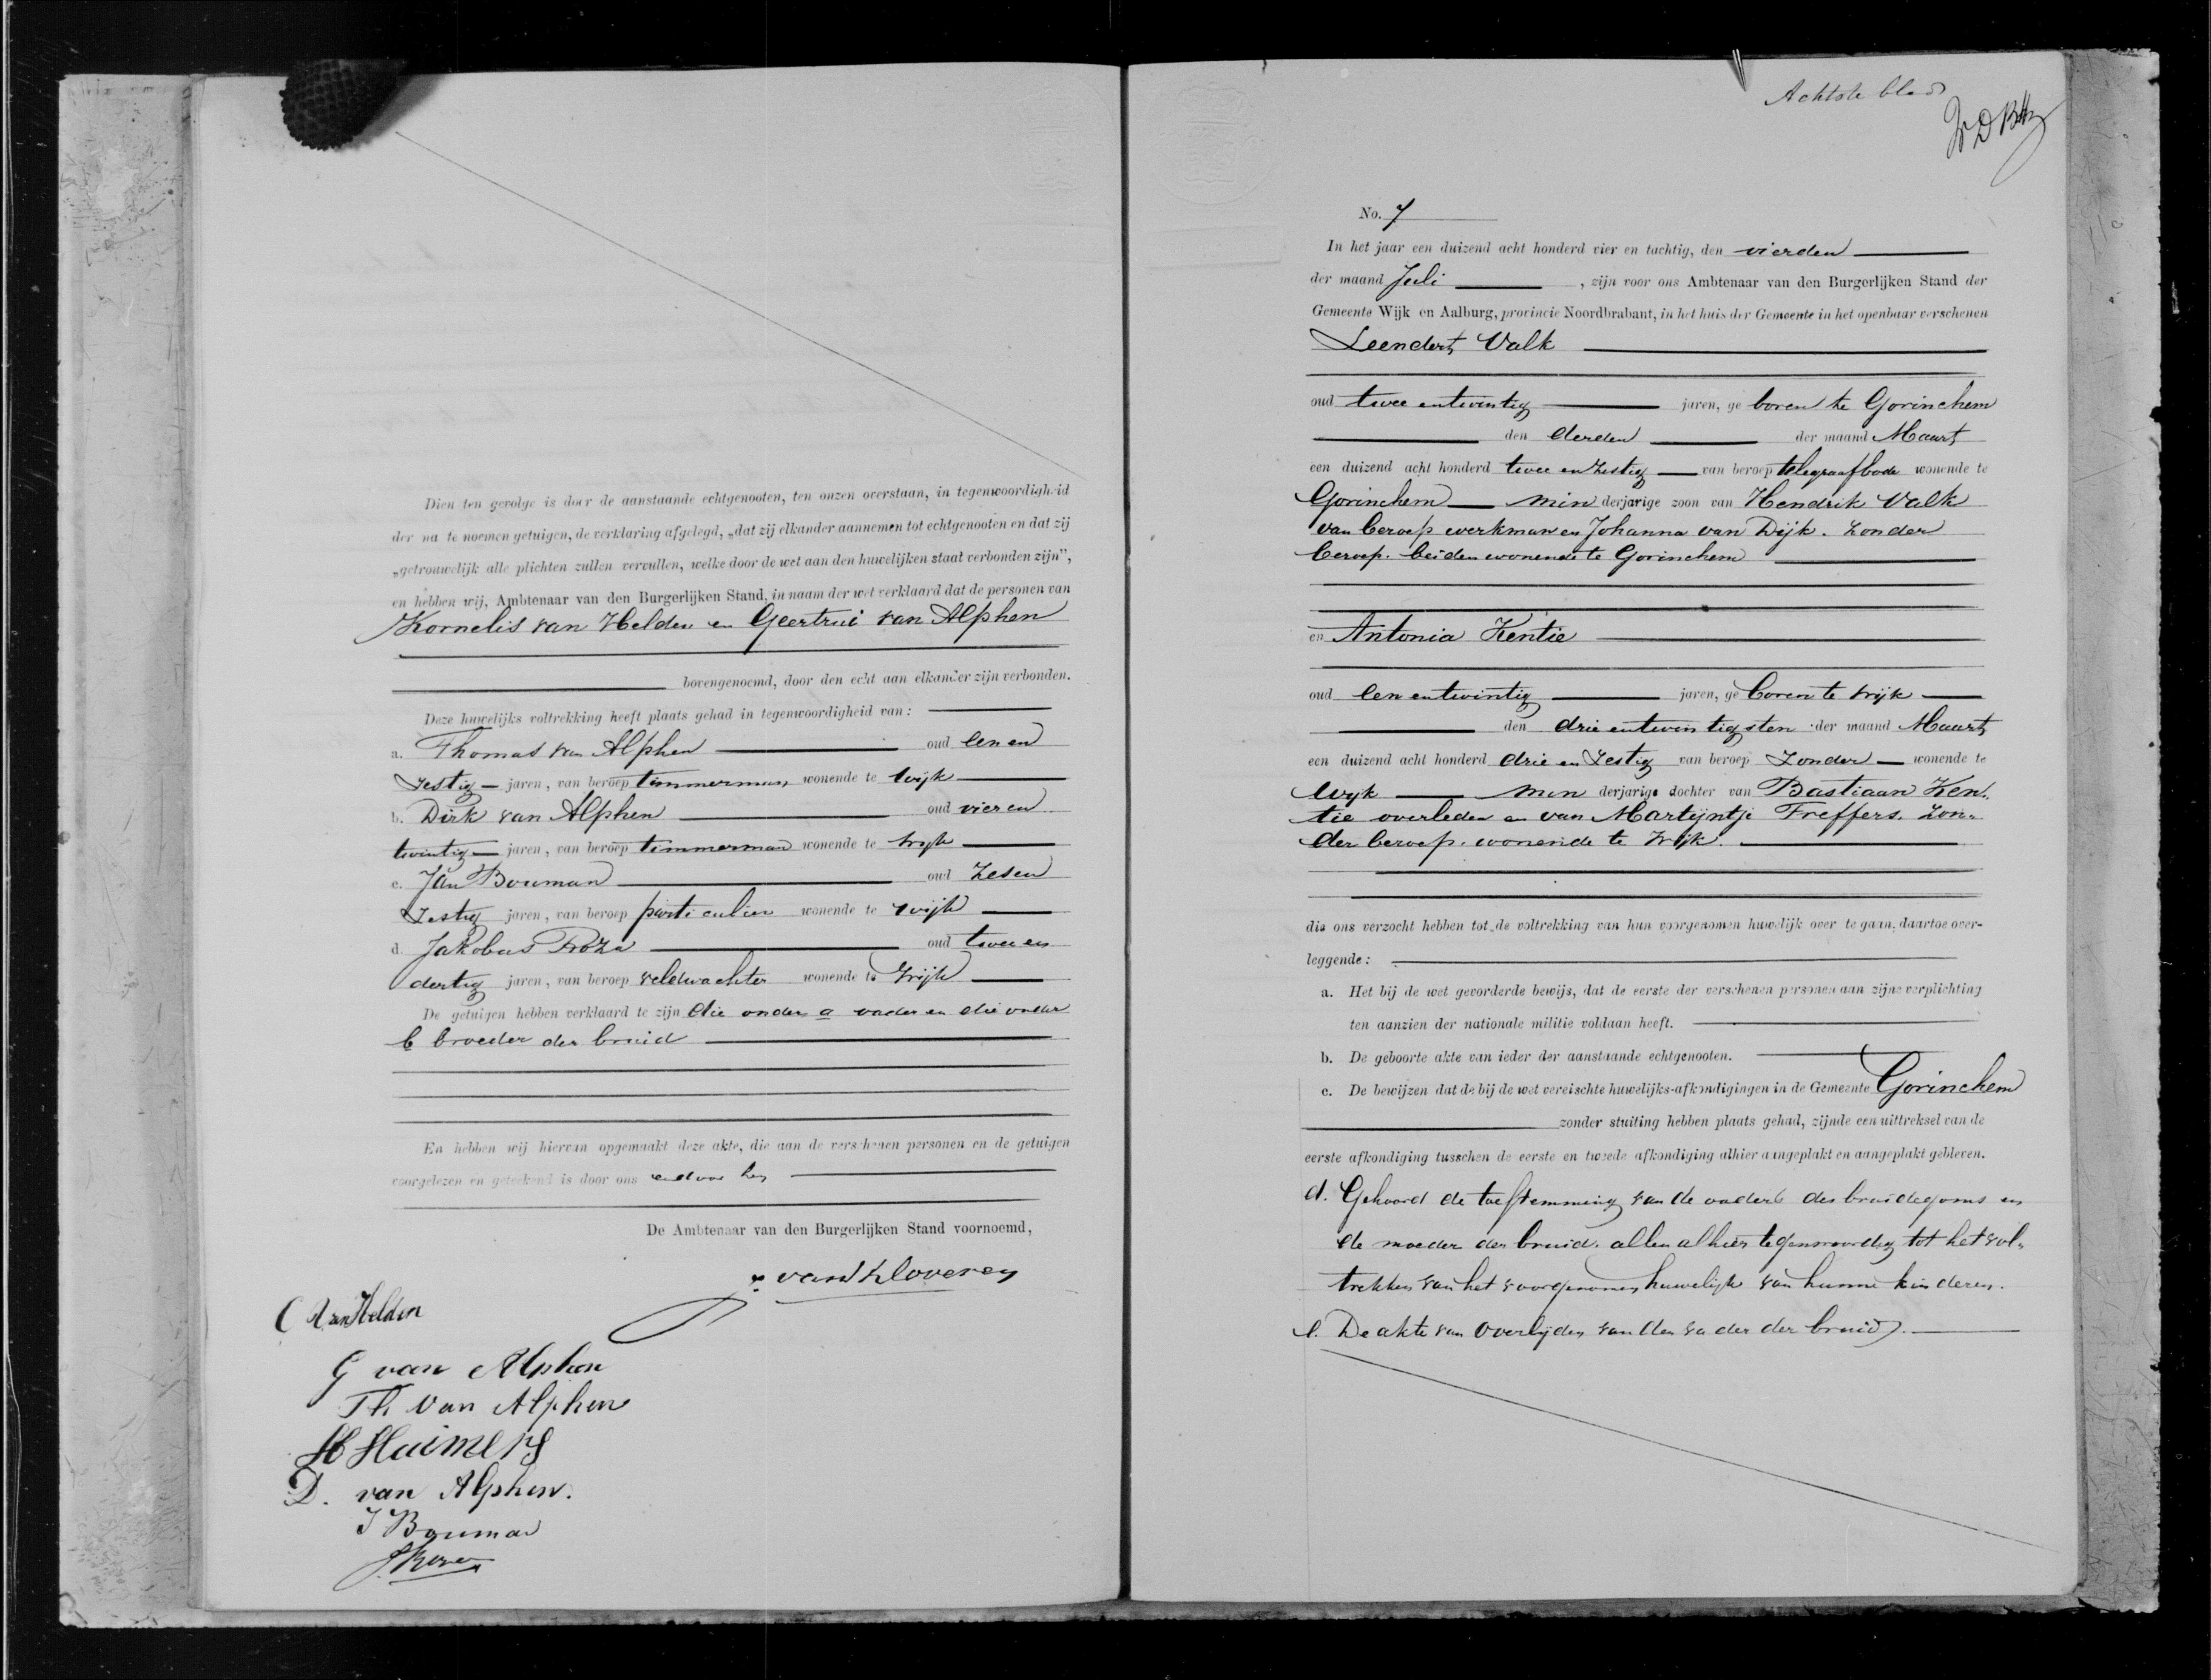 Dien ten gevolge is door de aanstaande echtgenooten, ten onzen overstaan, in tegenwoordigheid
der na te noemen getuigen, de verklaring afgelegd, „dat zij elkander aannemen tot echtgenooten en dat zij
„getrouwelijk alle plichten zullen vervullen, welke door de wet aan den huwelijken staat verbonden zijn”,
en hebben wij, Ambtenaar van den Burgerlijken Stand, in naam der wet verklaard dat de personen van
Kornelis van Helden en Geertrui van Alphen
bovengenoemd, door den echt aan elkander zijn verbonden.
Deze huwelijks voltrekking heeft plaats gehad in tegenwoordigheid van:
a. Thomas van Alphen oud een en
Zestig jaren, van beroep timmerman wonende te Wijk
b. Dirk van Alphen oud vier en
twintig jaren, van beroep timmerman wonende te Wijk
c. Jan Bouman oud Zes en
Zestig jaren, van beroep particulier wonende te Wijk
d. Jakobus Roza oud twee en
dertig jaren, van beroep veldwachter wonende te Wijk
De getuigen hebben verklaard te zijn die onder a vader en die onder
b broeder der bruid
En hebben wij hiervan opgemaakt deze akte, die aan de verschenen personen en de getuigen
voorgelezen en geteekend is door ons en door hen
De Ambtenaar van den Burgerlijken Stand voornoemd,
van Helden
G van Alphen
Th van Alphen
D. van Alphen.
J Bouman
Achtste blad
No. 7
In het jaar een duizend acht honderd vier en tachtig, den vierden
der maand Juli, zijn voor ons Ambtenaar van den Burgerlijken Stand der
Gemeente Wijk en Aalburg, provincie Noordbrabant, in het huis der Gemeente in het openbaar verschenen
Leendert Valk
oud twee entwintig jaren, ge boren te Gorinchem
den derden der maand Maart
een duizend acht honderd twee en zestig van beroep telegraafbode wonende te
Gorinchem min derjarige zoon van Hendrik Valk
van beroep werkman en Johanna van Dijk. Zonder
beroep. beiden wonende te Gorinchem
en Antonia Kentie
oud een entwintig jaren, ge boren te Wijk
den drie entwintigsten der maand Maart
een duizend acht honderd drie en Zestig van beroep Zonder wonende te
Wijk min derjarige dochter van Bastiaan Ken„
tie overleden en van Martijntje Treffers. Zon„
der beroep. wonende te Wijk.
die ons verzocht hebben tot de voltrekking van hun voorgenomen huwelijk over te gaan, daartoe over-
leggende:
a. Het bij de wet gevorderde bewijs, dat de eerste der verschenen personen aan zijne verplichting
ten aanzien der nationale militie voldaan heeft.
b. De geboorte akte van ieder der aanstaande echtgenooten.
c. De bewijzen dat de bij de wet vereischte huwelijks-afkondigingen in de Gemeente Gorinchem
zonder stuiting hebben plaats gehad, zijnde een uittreksel van de
eerste afkondiging tusschen de eerste en tweede afkondiging alhier aangeplakt en aangeplakt gebleven.
d. Gehoord de toestemming van de ouders des bruidegoms en
de moeder der bruid. allen alhier tegenwoordig tot het vol„
trekken van het voorgenomen huwelijk van hunne kinderen.
e. De akte van overlijden van den vader der bruid.